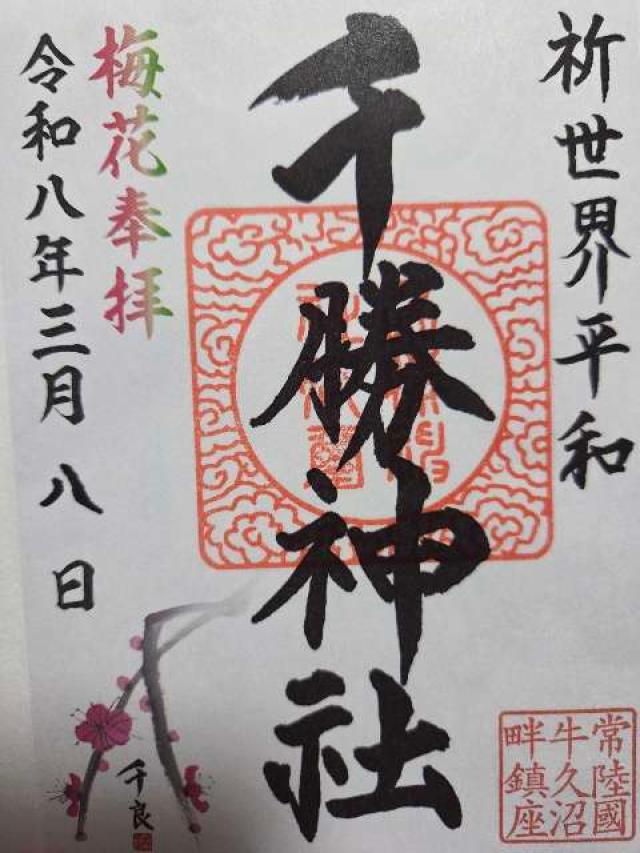 祈世界平和
千勝神社
梅花奉拝
令和八年三月八日
千良
常陸國
牛久沼
畔鎮座